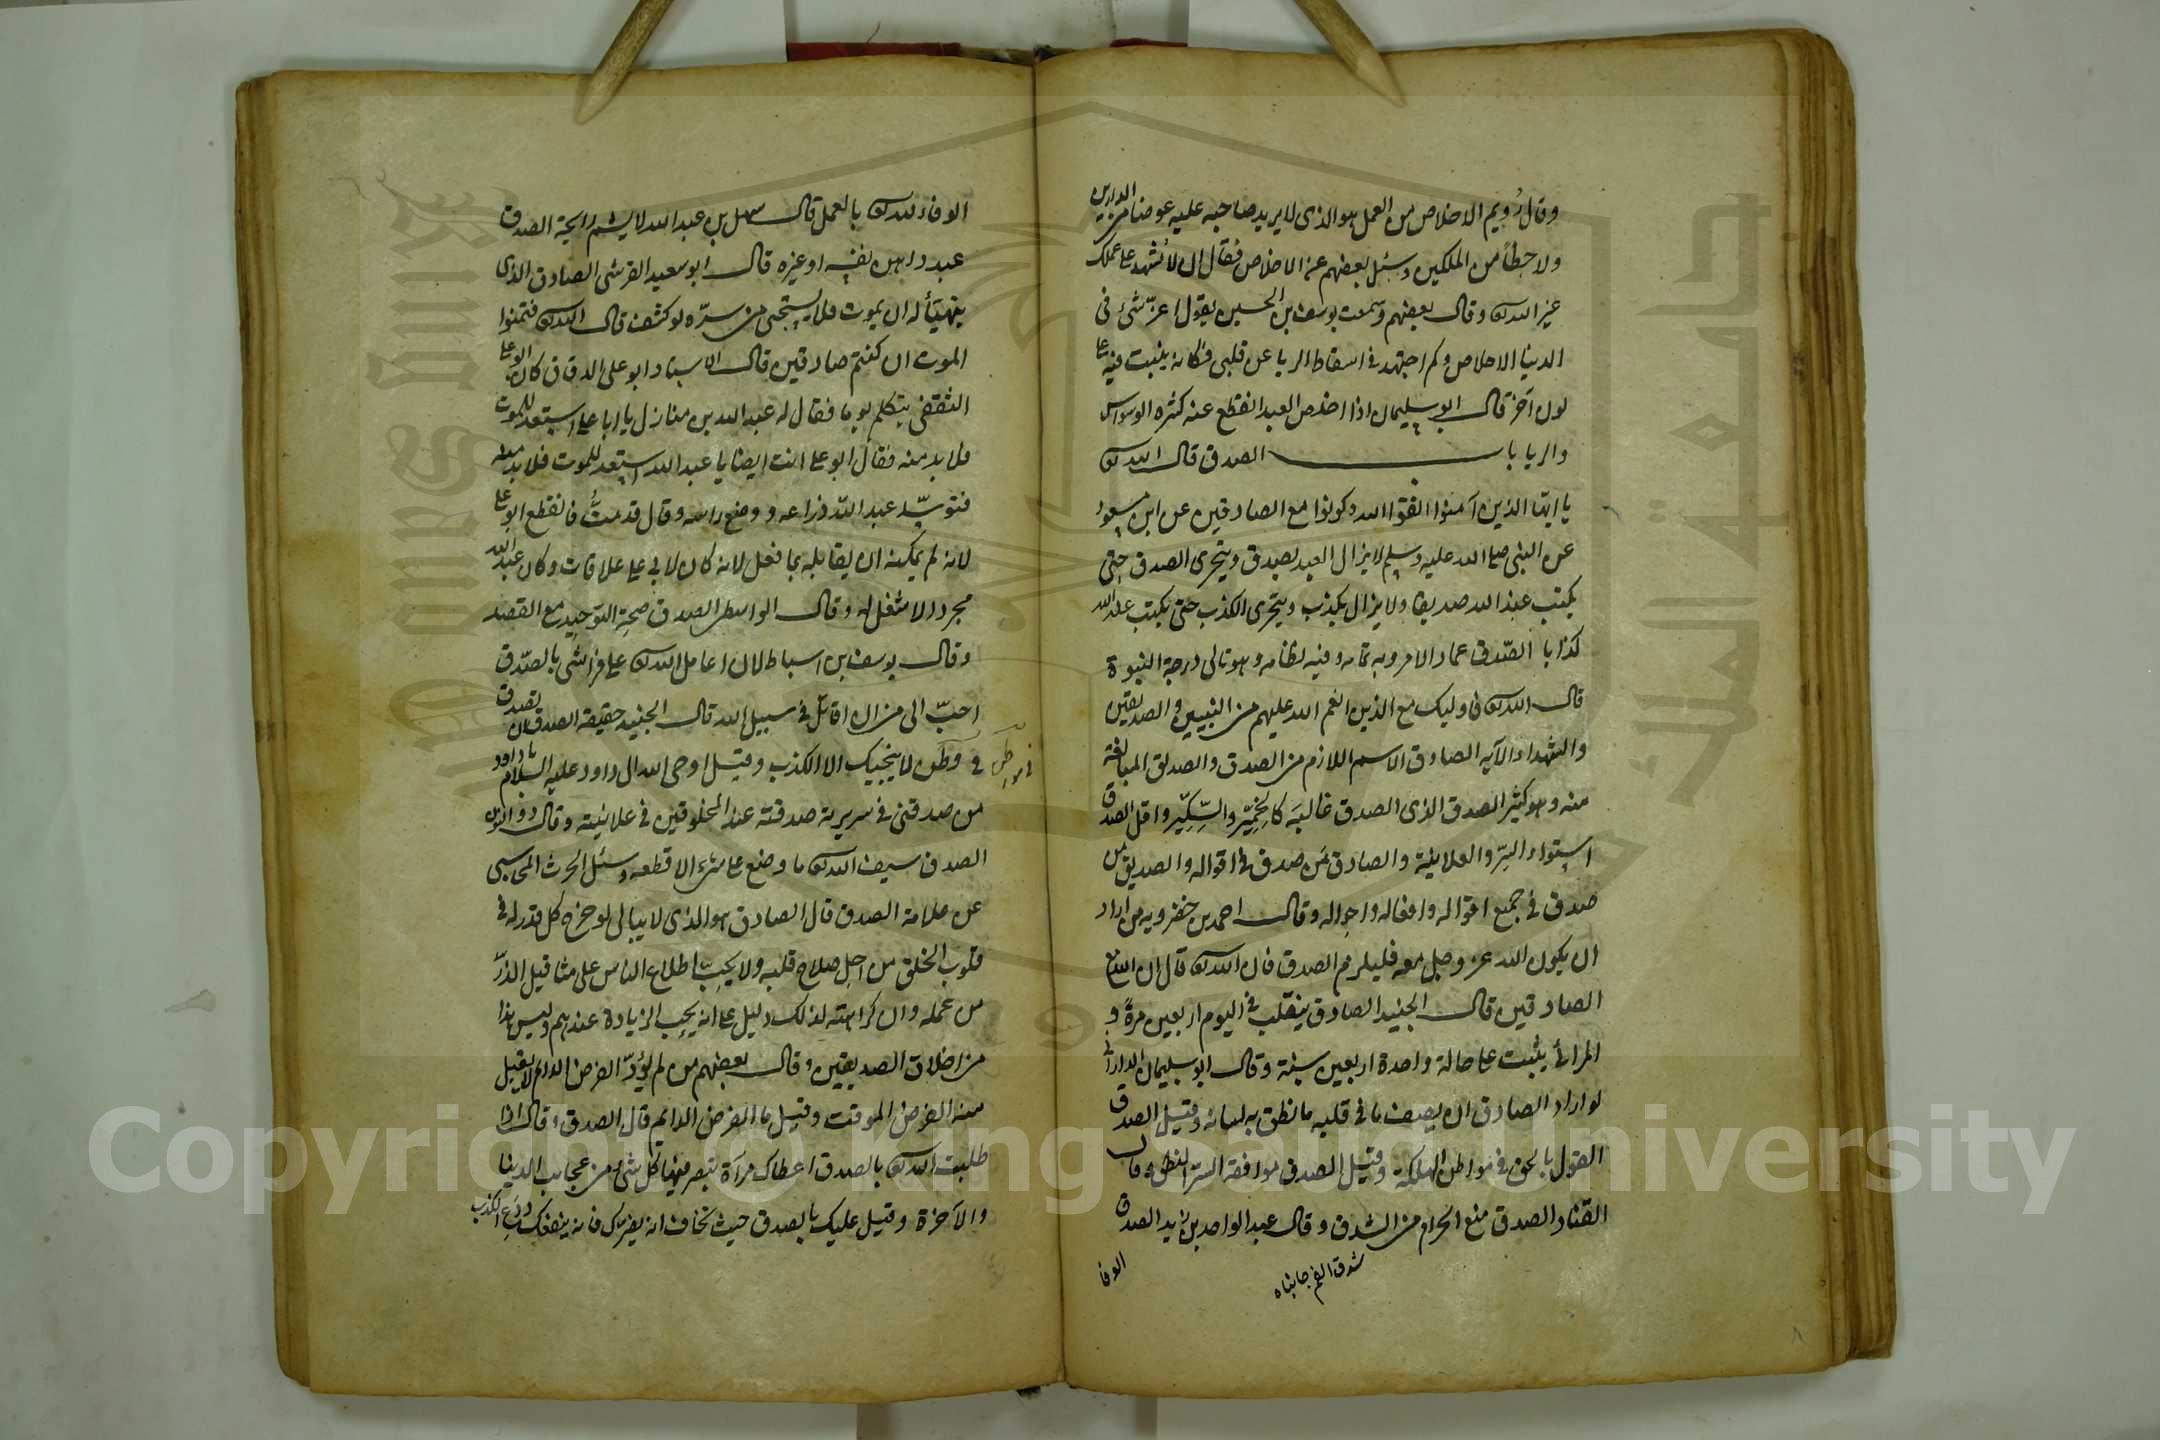 وقال رُويم الاخلاص من العمل هو الذى لا يريد صاحبه عليه عوضا من الدارين
ولا حظاً من الملكين وسئل بعضهم عن الاخلاص فقال ان لا تُشهد على عملك
غير الله تعالى وقال بعضهم وسمعت يوسف بن الحسين يقول اعزّ شئ فى
الدنيا الاخلاص وكم اجتهد فى اسقاط الريا عن قلبى فكانه ينبت فيه على
لون آخر قال ابو سليمان اذا اخلص العبد انقطع عنه كثره الوسواس
والريا باب الصدق قال الله تعالى
يا ايها الذين آمنوا اتقوا الله وكونوا مع الصادقين عن ابن مسعود
عن النبى صلى الله عليه وسلم لا يزال العبد يصدق ويتحرى الصدق حتى
يكتب عند الله صديقا ولا يزال يكذب ويتحرى الكذب حتى يكتب عند الله
كذابا الصّدق عماد الامر وبه تمامه وفيه نظامه وهو تالى درجة النبوة
قال الله تعالى فاوليك مع الذين انعم الله عليهم من النبيين والصديقين
والشهداء الآيه الصادق الاسم اللازم من الصدق والصديق المبالغة
منه وهو كثير الصدق الذى الصدق غالبَه كالخِمِّير والسِّكِّير واقل الصدق
استواء السِرّ والعلانية والصادق مَن صدق فى اقواله والصديق من
صدق فى جميع اقواله وافعاله واحواله وقال احمد بن خضرويه من اراد
ان يكون الله عز وجل معه فليلزم الصدق فان الله تعالى قال ان الله مع
الصادقين قال الجنيد الصادق ينقلب فى اليوم اربعين مرةً و
المرائى يثبت على حالة واحدة اربعين سنة وقال ابو سليمان الدارانى
لو اراد الصادق ان يصف ما فى قلبه ما نطق به لسانه وقيل الصدق
القول بالحق فى مواطن الهلكة وقيل الصدق موافقة السر النطق وقال
القناد الصدق منع الحرام من الشدق وقال عبد الواحد بن زيد الصدق
شدق الفم جانباه
الوفا
الوفاء لله تعالى بالعمل قال سهل بن عبد الله لا يشم رايحة الصدق
عبد داهن نفسه او غيره قال ابو سعيد القرشى الصادق الذى
يتهيّأ له ان يموت فلا يستحى من سرّه لو كشف قال الله تعالى فتمنوا
الموت ان كنتم صادقين قال الاستاد ابو على الدقاق كان ابو على
الثقفى يتكلم يوما فقال له عبد الله بن منازل يا ابا على استعد للموت
فلا بد منه فقال ابو على انت ايضا يا عبد الله استعد للموت فلا بد منه
فتوسّد عبد الله ذراعه ووضع راسه وقال قد متُّ فانقطع ابو على
لانه لم يمكنه ان يقابله بما فعل لانه كان لابى على علاقات وكان عبد الله
مجردا لا شغل له وقال الواسطى الصدق صحة التوحيد مع القصد
وقال يوسف بن اسباط لان اعامل الله تعالى على فراشى بالصّدق
احبّ الى من ان اقاتل فى سبيل الله قال الجنيد حقيقة الصدق ان تصدق
فى وطن لا ينجيك الا الكذب وقيل اوحى الله الى داود عليه السلام يا داود
فى مواطن
من صدقنى فى سريرته صدقته عند المخلوقين فى علانيته وقال ذو النون
الصدق سيف الله تعالى ما وضع على شئ الا قطعه وسئل الحرث المحاسبى
عن علامة الصدق قال الصادق هو الذى لا يبالى لو خرج كل قدر له فى
قلوب الخلق من اجل صلاح قلبه ولا يحبّ اطلاع الناس على مثاقيل الذرّ
من عمله وان كراهته لذلك دليل على انه يحب الزيادة عندهم وليس هذا
من اخلاق الصديقين وقال بعضهم من لم يؤدّ الفرض الدائم لا يقبل
منه الفرض الموقت وقيل ما الفرض الدايم قال الصدق وقال اذا
طلبت الله تعالى بالصدق اعطاك مرآة تبصر فيها كل شئ من عجايب الدنيا
والآخرة وقيل عليك بالصدق حيث تخاف انه يضرك فانه ينفعك ودَعِ الكذب
Copyright © King Saud University
جامعة الملك سعود
1957